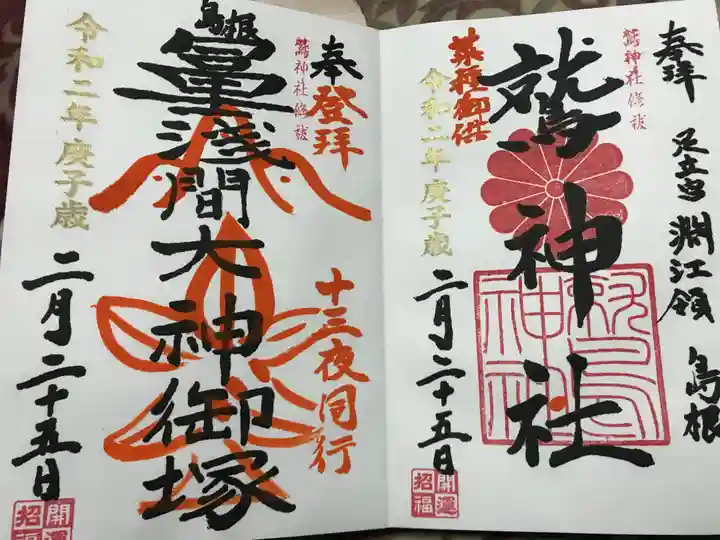 奉拝
足立宮
淵江領
島根
鷲神社修祓
鷲神社
菜種御供
令和二年庚子歳
二月二十五日
開運
招福
奉登拝
鷲神社修祓
十三夜同行
島根
浅間大神御塚
令和二年庚子歳
二月二十五日
開運
招福